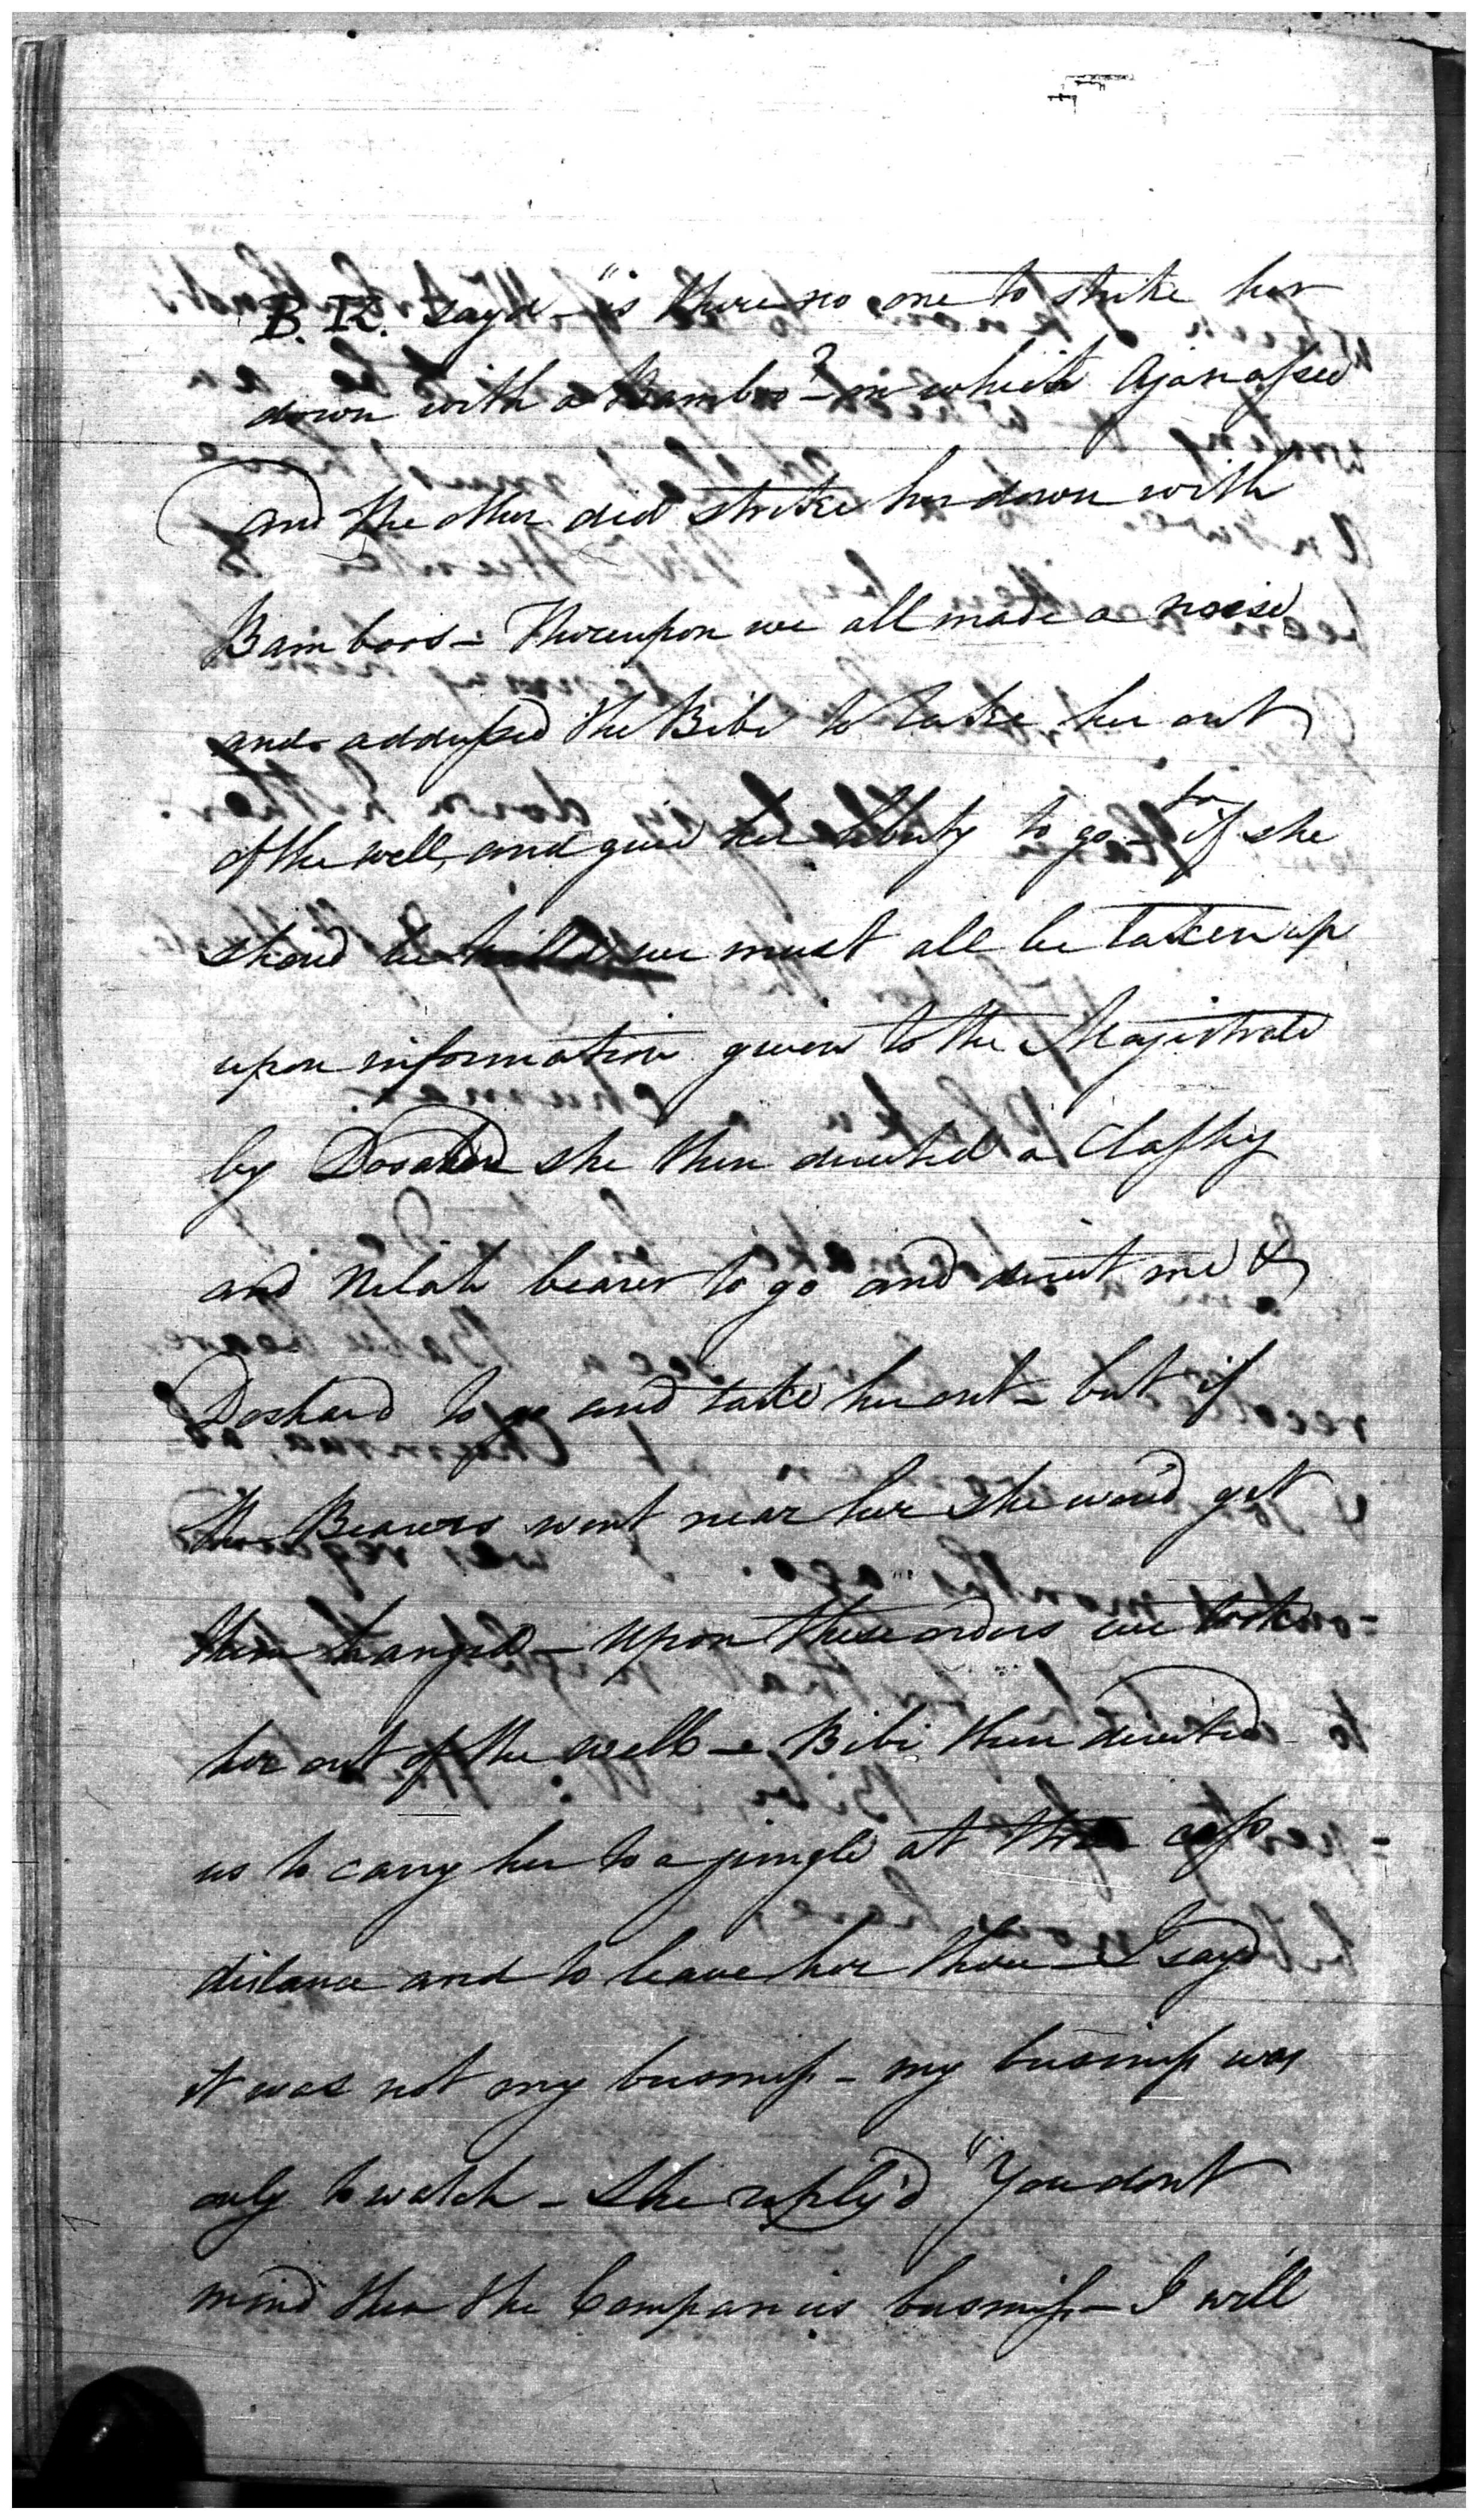 B. K. sayd - "is there no one to strike her
down with a Bamboo? - on which Ajanassed
and the other did strike her down with
Bamboos - Thereupon we all made a noise
and addressed the Bibi to take her out
of the well, and give her liberty to go - for if she
shoud be killd we must all be taken up
upon information given to the Magistrate
by she then directed a Clashy
and Nilah bearer to go and direct me &
Doshard to go and take her out - but if
the Bearers went near her she woud get
them hanged - Upon these orders we took
her out of the well - Bibi then directed
us to carry her to a jungle at the coss
distance and to leave her there - I sayd
it was not my business - my business was
only to watch - She reply'd "You dont
mind then the Companies business - I will